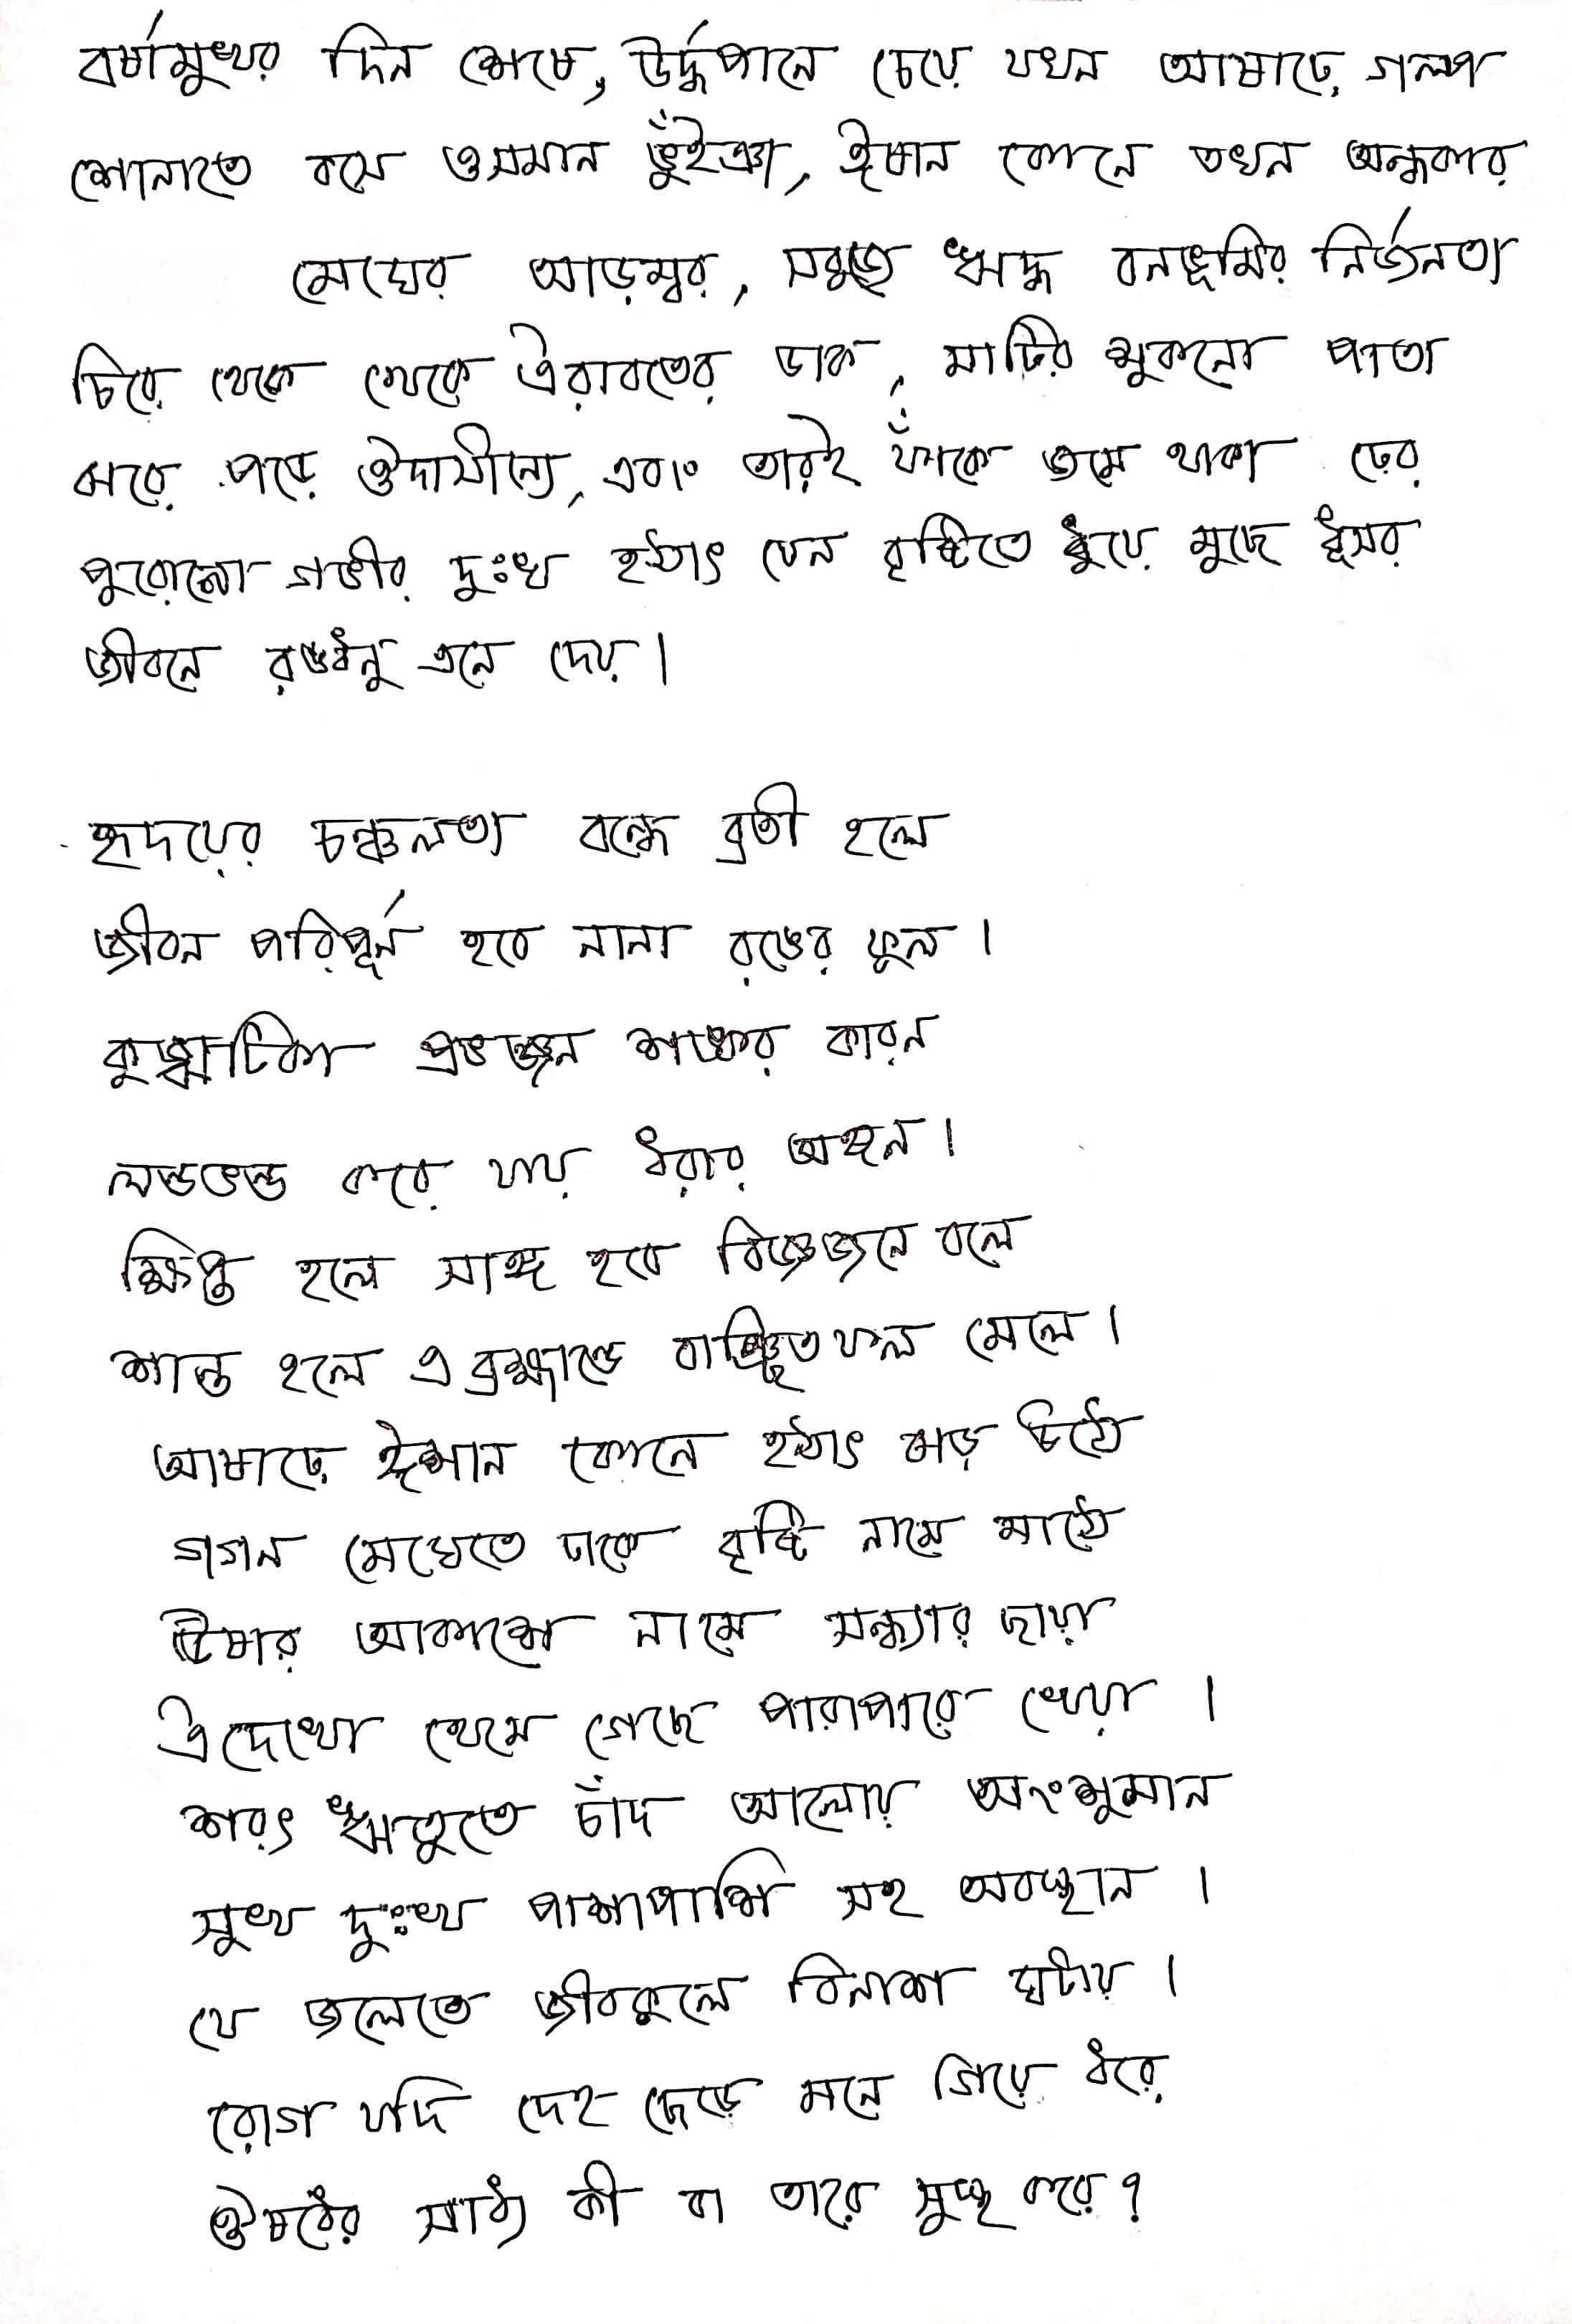 বর্ষামুখর দিন শেষে, উর্দ্ধপানে চেয়ে যখন আষাঢ়ে গল্প
শোনাতে বসে ওসমান ভুঁইঞা, ঈষান কোনে তখন অন্ধকার
মেঘের আড়ম্বর, সবুজে ঋদ্ধ বনভূমির নির্জনতা
চিরে থেকে থেকে ঐরাবতের ডাক, মাটির শুকনো পাতা
ঝরে পড়ে ঔদাসীন্যে, এবং তারই ফাঁকে জমে থাকা ঢের
পুরোনো গভীর দুঃখ হঠাৎ যেন বৃষ্টিতে ধুয়ে মুছে ধূসর
জীবনে রঙধনু এনে দেয়।
হৃদয়ের চঞ্চলতা বন্ধে ব্রতী হলে
জীবন পরিপূর্ন হবে নানা রঙের ফুল।
কুজ্ঝটিকা প্রভঞ্জন শঙ্কার কারন
লন্ডভন্ড করে যায় ধরার অঙ্গন।
ক্ষিপ্ত হলে সাঙ্গ হবে বিজ্ঞজনে বলে
শান্ত হলে এ ব্রহ্মান্ডে বাঞ্ছিতফল মেলে।
আষাঢ়ে ঈশান কোনে হঠাৎ ঝড় উঠে
গগন মেঘেতে ঢাকে বৃষ্টি নামে মাঠে
ঊষার আকাশে নামে সন্ধ্যার ছায়া
ঐদেখো থেমে গেছে পারাপারে খেয়া।
শরৎ ঋতুতে চাঁদ আলোয় অংশুমান
সুখ দুঃখ পাশাপাশি সহ অবস্থান।
যে জলেতে জীবকুলে বিনাশ ঘটায়।
রোগ যদি দেহ ছেড়ে মনে গিয়ে ধরে
ঔষধের সাধ্য কী বা তারে সুস্থ করে?